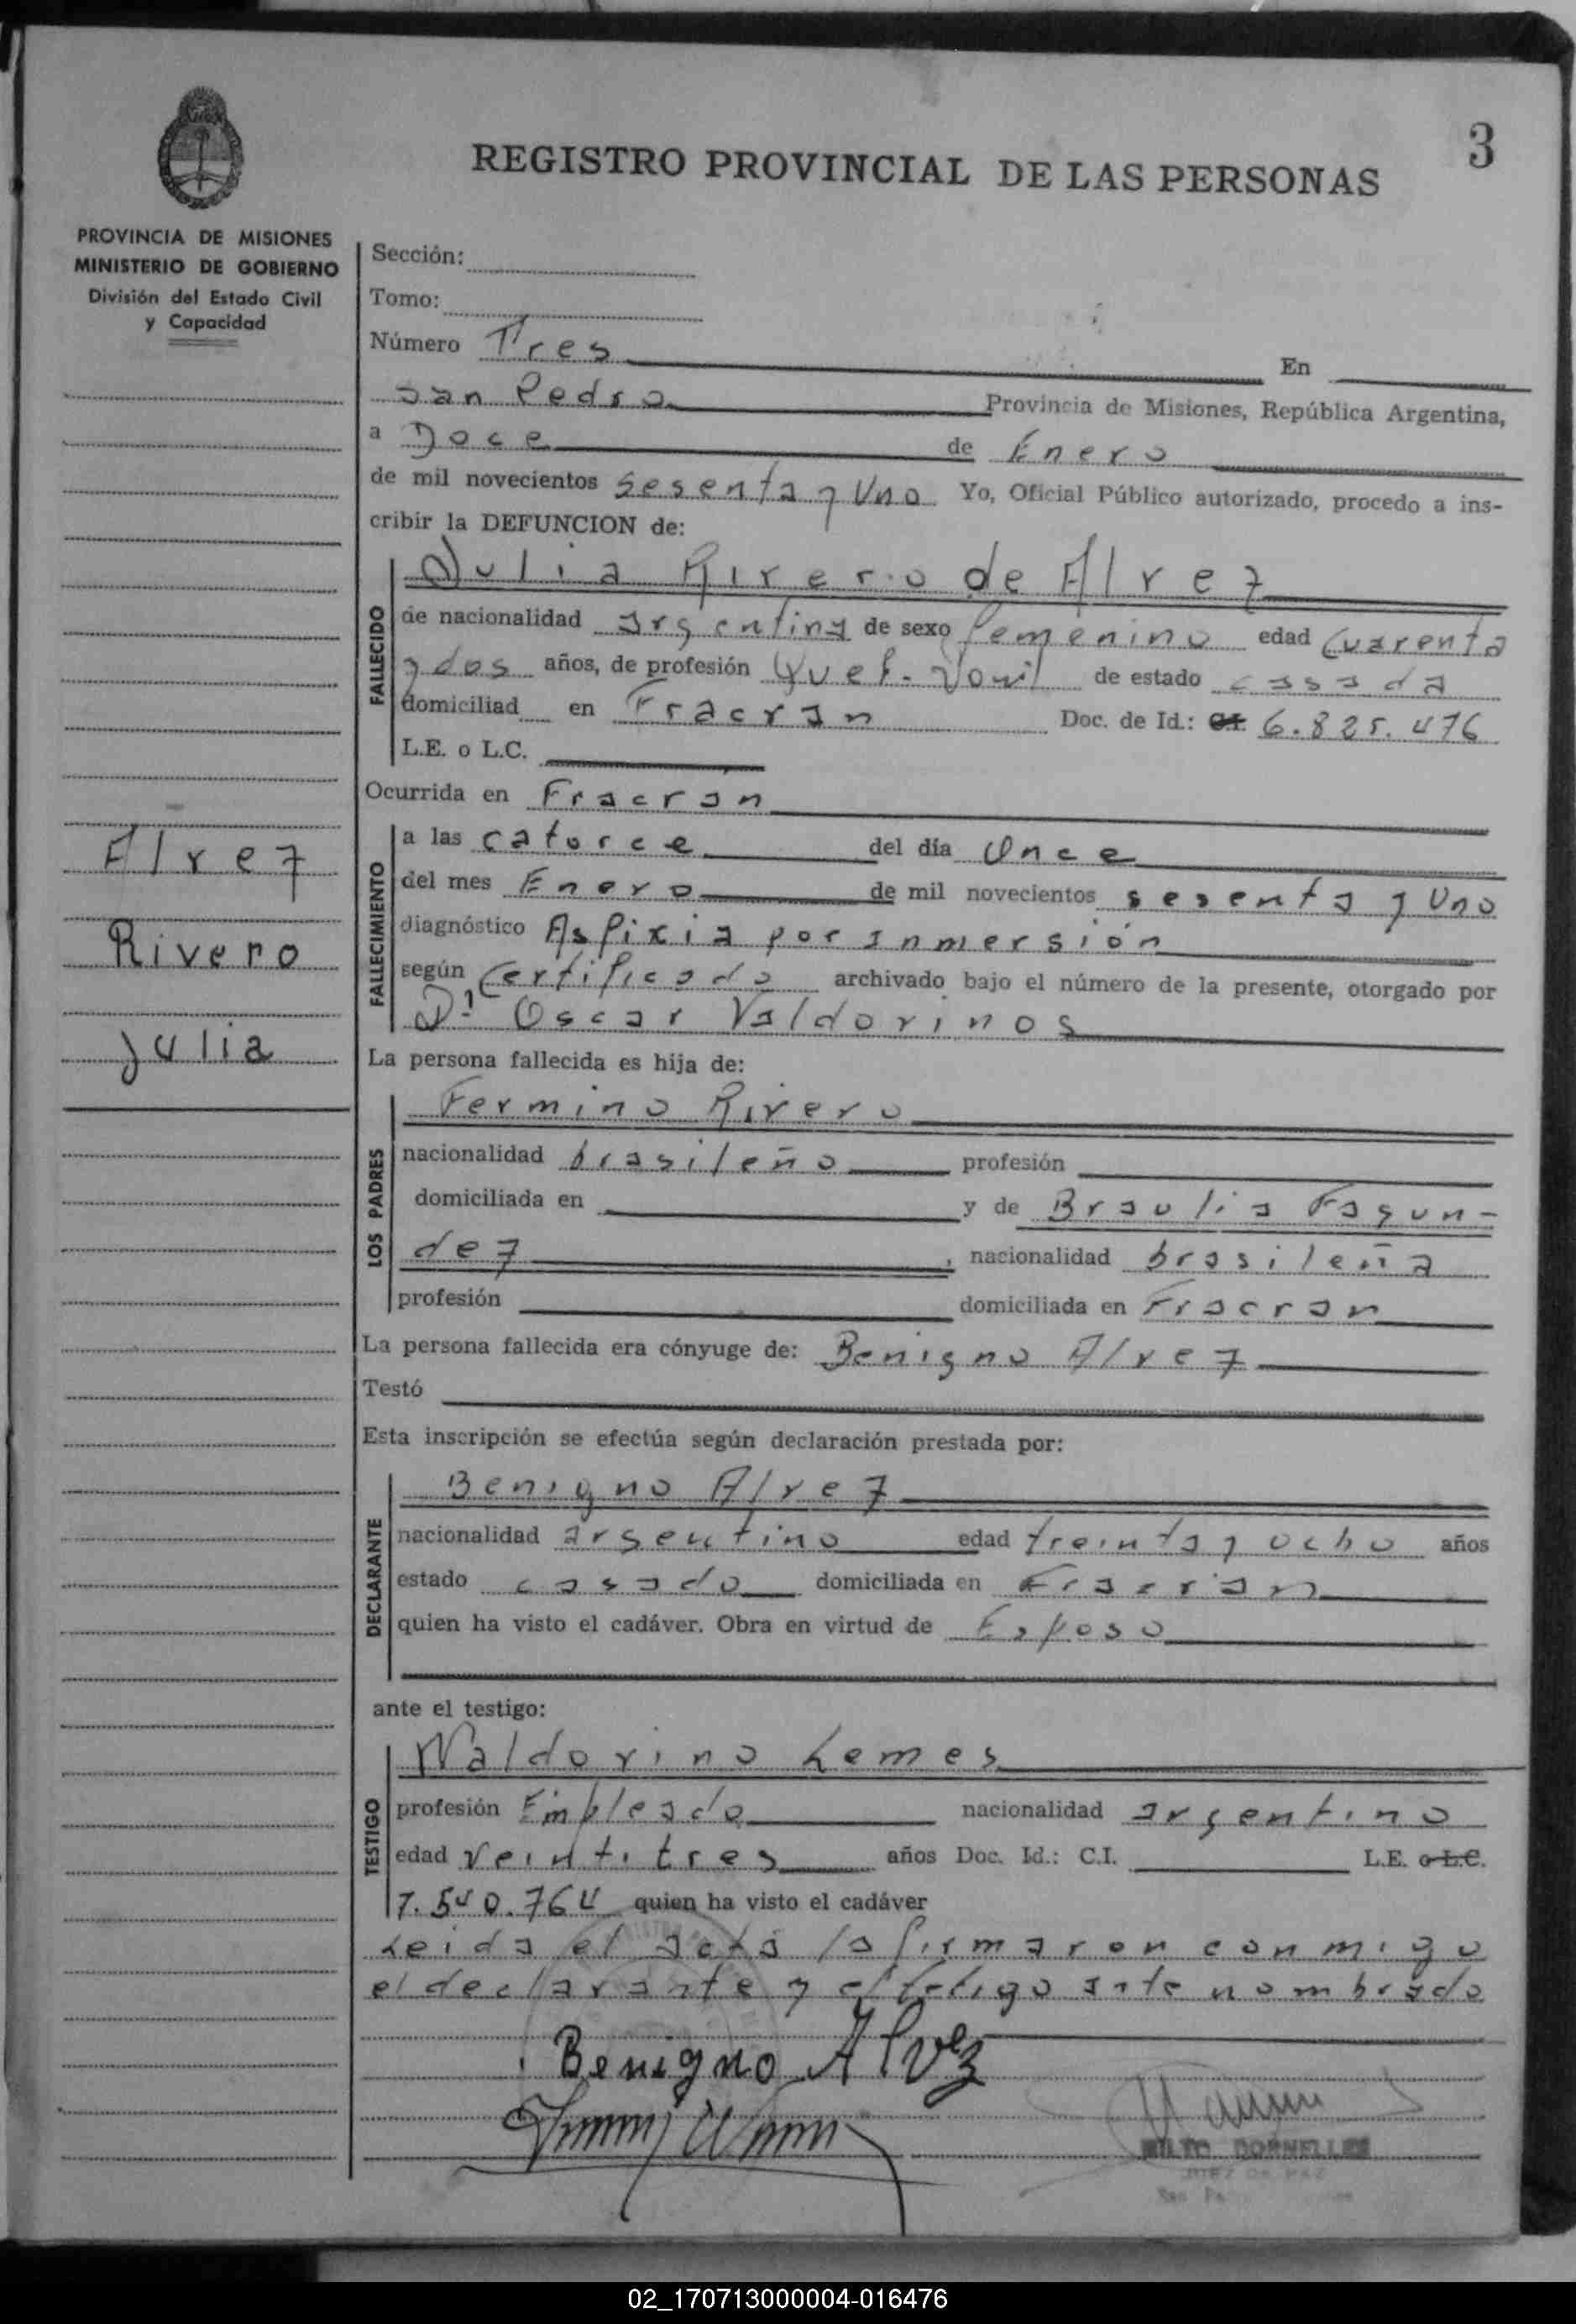 3
REGISTRO PROVINCIAL DE LAS PERSONAS
PROVINCIA DE MISIONES
MINISTERIO DE GOBIERNO
División del Estado Civil
y Capacidad
Alvez
Rivero
Julia
Sección:
Tomo:
Número Tres En
San Pedro Provincia de Misiones, República Argentina,
a Doce de Enero
de mil novecientos sesenta y Uno Yo, Oficial Público autorizado, procedo a ins-
cribir la DEFUNCION de:
FALLECIDO
Julia Rivero de Alvez
de nacionalidad argentina de sexo femenino edad Cuarenta
y dos años, de profesión de estado casada
domiciliad en Fracran Doc. de Id.: C.I. 6.825.476
L.E. o L.C.
Ocurrida en Fracran
FALLECIMIENTO
a las catorce del día Once
del mes Enero de mil novecientos sesenta y Uno
diagnóstico Asfixia por inmersión
según Certificado archivado bajo el número de la presente, otorgado por
Dr Oscar Valdorinos
La persona fallecida es hija de:
LOS PADRES
Fermino Rivero
nacionalidad brasileño profesión
domiciliada en y de Braulia Fagun-
dez, nacionalidad brasileña
profesión domiciliada en Fracran
La persona fallecida era cónyuge de: Benigno Alvez
Testó
Esta inscripción se efectúa según declaración prestada por:
DECLARANTE
Benigno Alvez
nacionalidad argentino edad treinta y ocho años
estado casado domiciliada en Fracran
quien ha visto el cadáver. Obra en virtud de Esposo
ante el testigo:
TESTIGO
Waldorino Lemes
profesión Empleado nacionalidad argentino
edad veintitres años Doc. Id.: C.I. L.E. o L.C.
7.540.764 quien ha visto el cadáver
Leida el acta la firmaron conmigo
el declarante y el testigo ante nombrado
Benigno Alvez
DORNELLES
JUEZ DE PAZ
02_170713000004-016476